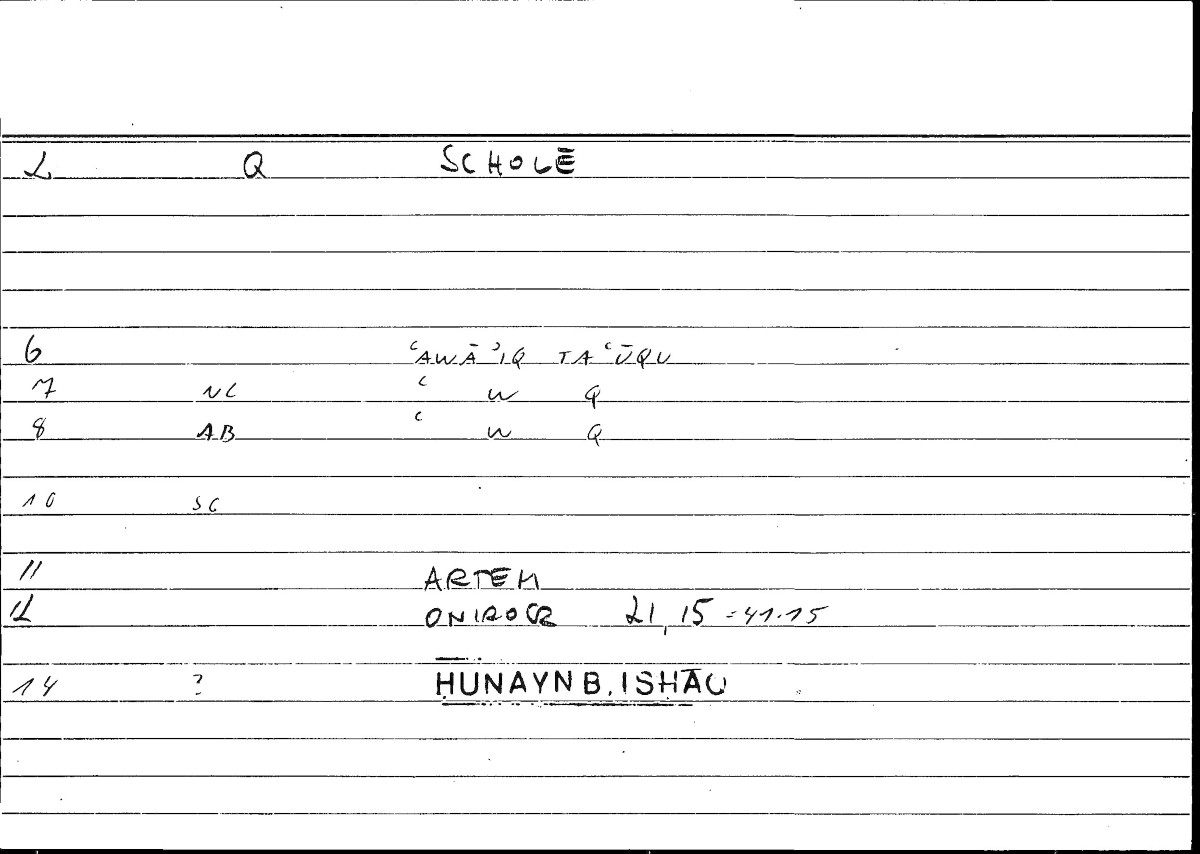 L Q SCHOLĒ
6 ʿAWĀʾIQ TAʿŪQU
7 NC ʿ W Q
8 AB ʿ W Q
10 SC
11 ARTEM
12 ONIROCR 21,15 = 41.15
14 ? ḤUNAYN B. ISḤĀQ